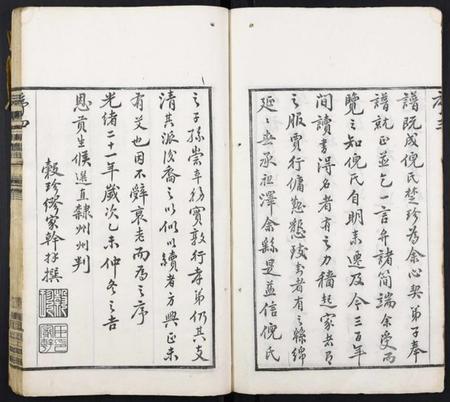 譜既成倪氏楚珍為余心契弟子奉
譜就正並乞一言弁諸簡端余受而
覽之知倪氏自明末遷及今三百年
間讀書得名者有之力穡起家者有
之服賈行傭懃懇者有之緜緜
延延世承祖澤余緜是益信倪氏
之子孫崇本務實敦行孝弟仍其支
清其派後裔之似以續者方興正未
有艾也因不辭衰老而為之序
光緒二十一年歲次乙未仲冬之吉
恩貢生候選直隸州州判
穀珍修家幹拜撰